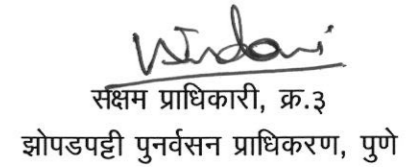 सक्षम प्राधिकारी, क्र.३
झोपडपट्टी पुनर्वसन प्राधिकरण, पुणे